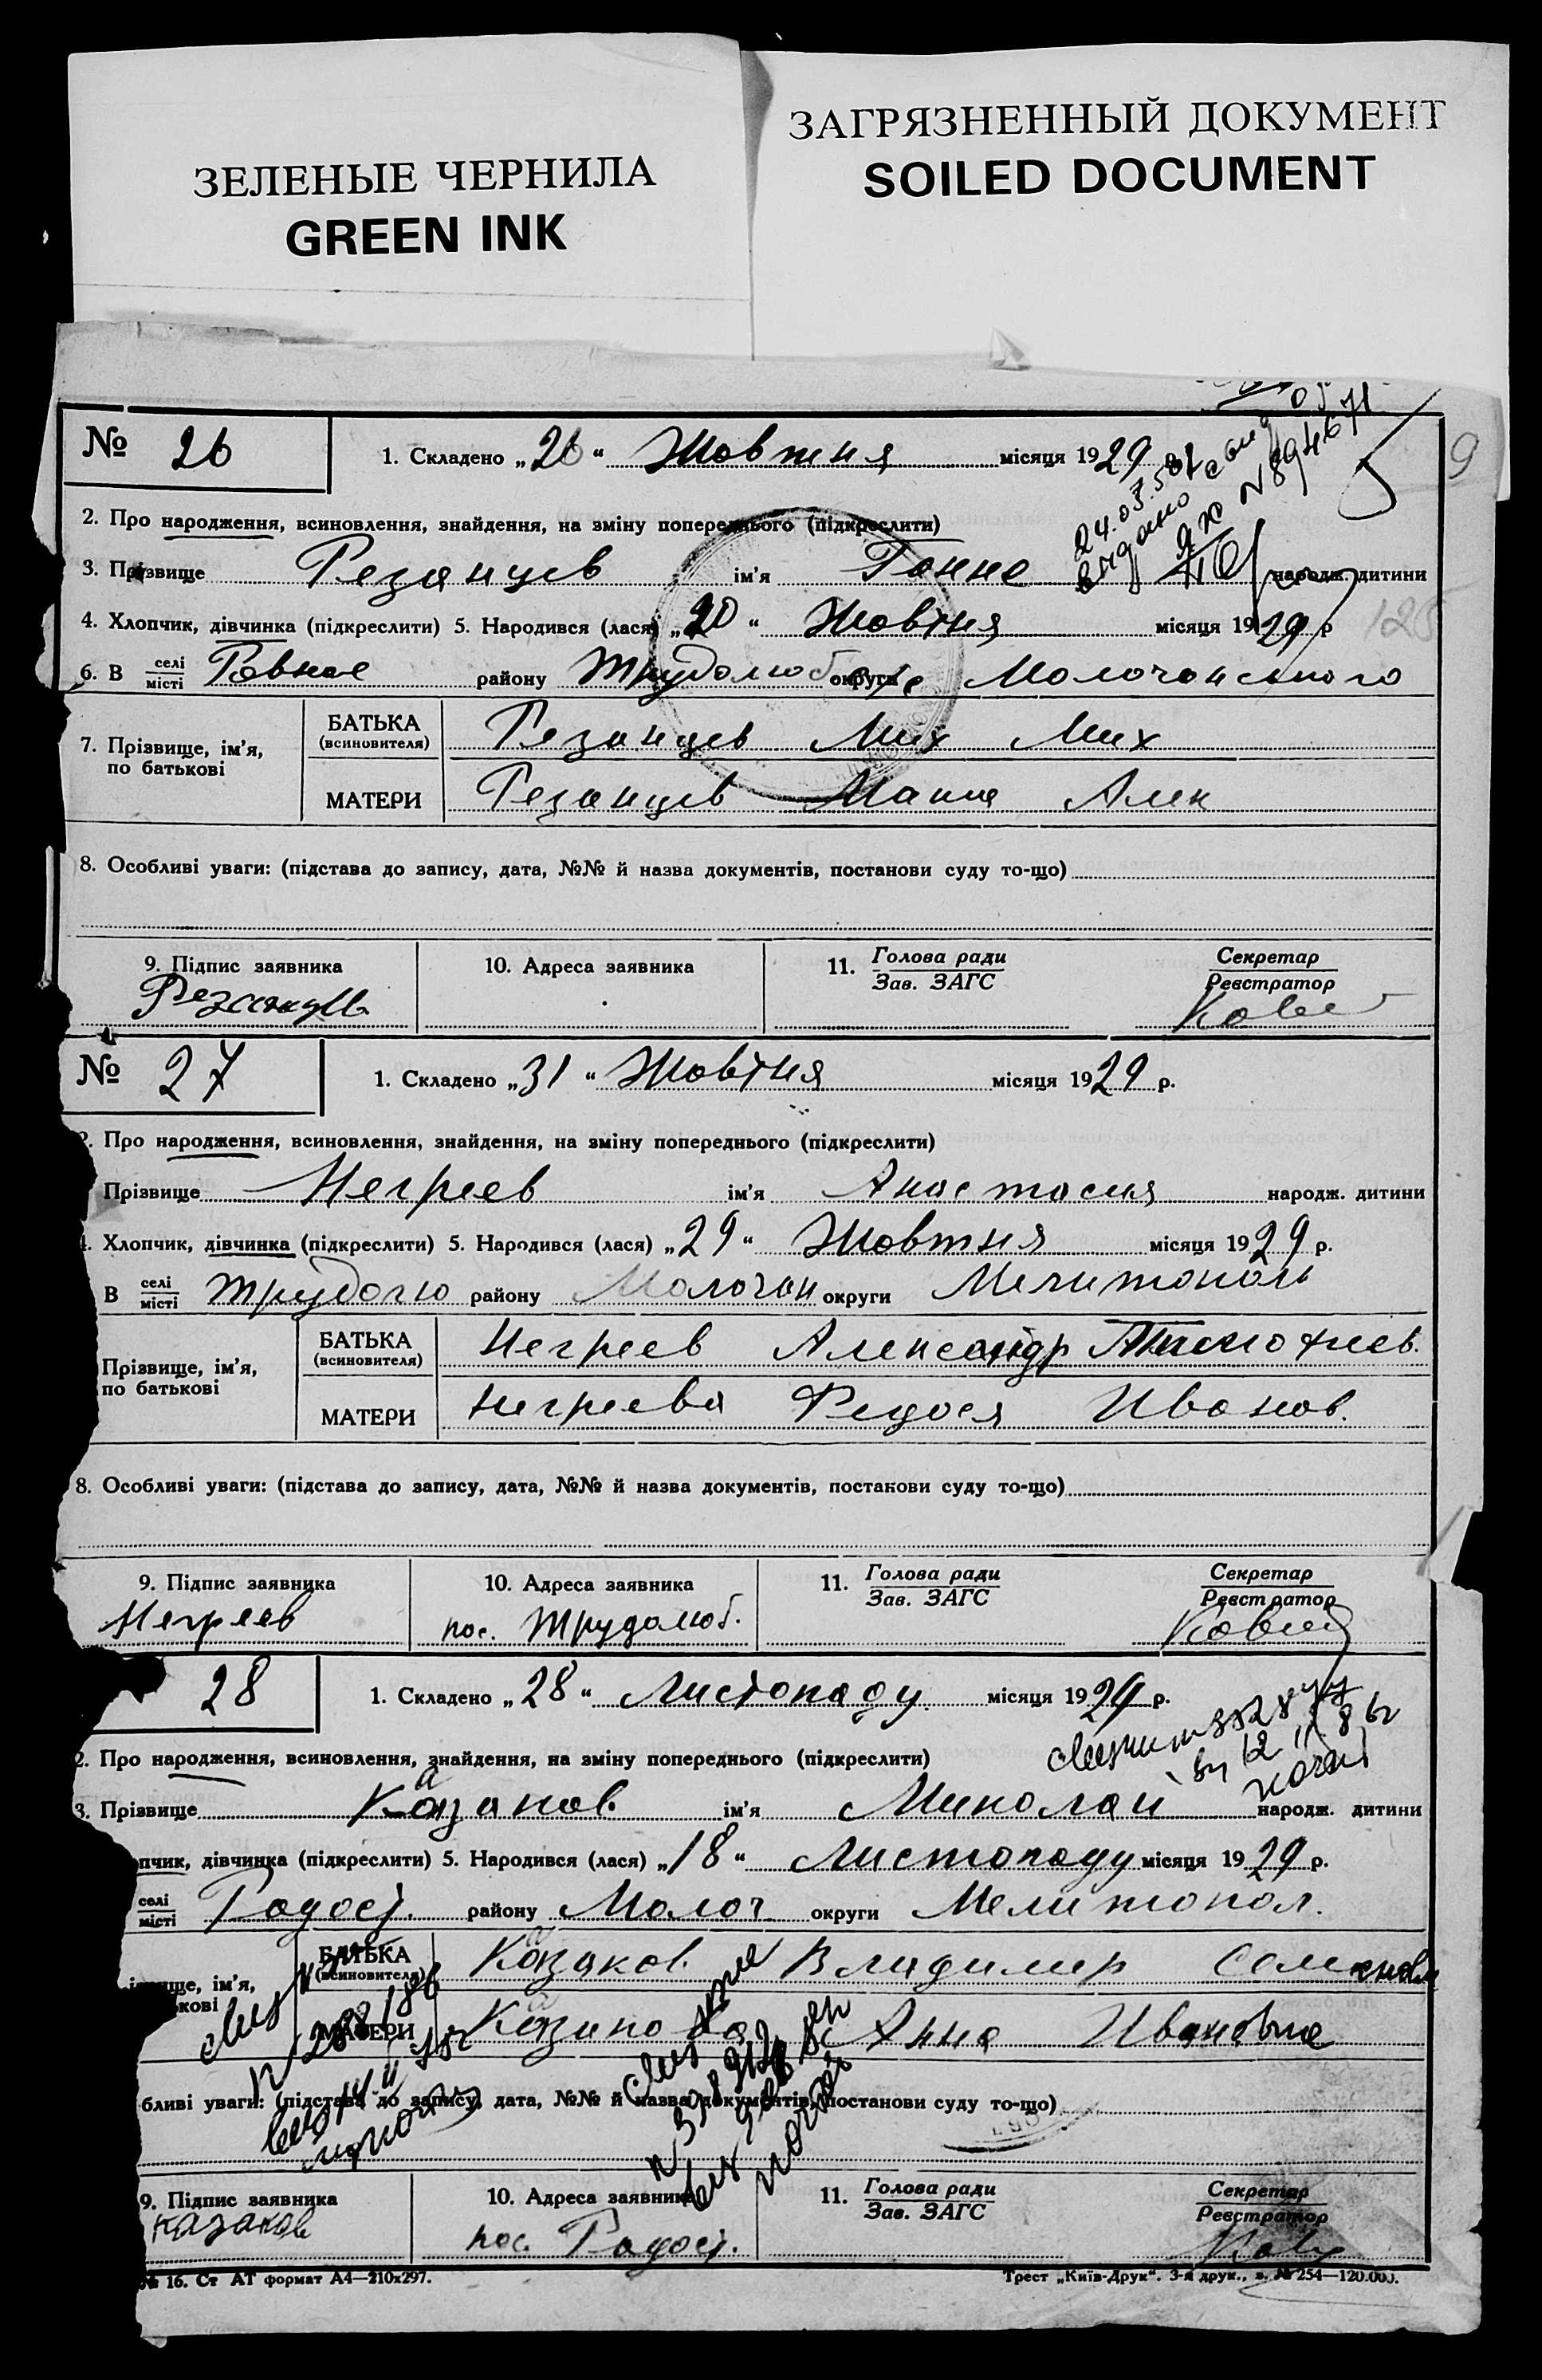 ЗЕЛЕНЫЕ ЧЕРНИЛА
GREEN INK
ЗАГРЯЗНЕННЫЙ ДОКУМЕНТ
SOILED DOCUMENT
9
№ 26
1. Складено „26“ Жовтня місяця 1929
24.03.58
видано
№ 894671
2. Про народження, всиновлення, знайдення, на зміну попереднього (підкреслити)
3. Прізвище Резанцев ім'я Ганна народж. дитини
4. Хлопчик, дівчинка (підкреслити) 5. Народився (лася) „20“ Жовтня місяця 1929 р
125
6. В селі/місті Ровное району Трудолюб округи Молочанського
7. Прізвище, ім'я, по батькові
БАТЬКА (всиновителя) Резанцев Мих Мих
МАТЕРИ Резанцев Мания Алек
8. Особливі уваги: (підстава до запису, дата, №№ й назва документів, постанови суду то-що)
9. Підпис заявника 10. Адреса заявника 11. Голова ради/Зав. ЗАГС Секретар/Реєстратор
Резанцев
№ 27
1. Складено „31“ Жовтня місяця 1929 р.
2. Про народження, всиновлення, знайдення, на зміну попереднього (підкреслити)
Прізвище Негреев ім'я Анастасия народж. дитини
4. Хлопчик, дівчинка (підкреслити) 5. Народився (лася) „29“ Жовтня місяця 1929 р.
В селі/місті Трудолю району Молочан округи Мелитополь
Прізвище, ім'я, по батькові
БАТЬКА (всиновителя) Негреев Александр Тимофеев.
МАТЕРИ Негреева Федося Иванов.
8. Особливі уваги: (підстава до запису, дата, №№ й назва документів, постанови суду то-що)
9. Підпис заявника 10. Адреса заявника 11. Голова ради/Зав. ЗАГС Секретар/Реєстратор
Негреев пос. Трудолюб.
28
1. Складено „28“ Листопаду місяця 1929 р.
2. Про народження, всиновлення, знайдення, на зміну попереднього (підкреслити)
3. Прізвище Казаков ім'я Миколай народж. дитини
пчик, дівчинка (підкреслити) 5. Народився (лася) „18“ Листопаду місяця 1929 р.
селі/місті Радост. району Молоч округи Мелитопол.
ім'я,
БАТЬКА (всиновителя) Казаков Владимир Семенов
МАТЕРИ Казакова Анна Ивановна
бливі уваги: (підстава до запису, дата, №№ й назва документів, постанови суду то-що)
9. Підпис заявника 10. Адреса заявника 11. Голова ради/Зав. ЗАГС Секретар/Реєстратор
Казаков пос. Радост.
№ 16. Ст АТ формат А4—210х297.
Трест „Київ-Друк“. 3-я друк., з. № 254—120.000.